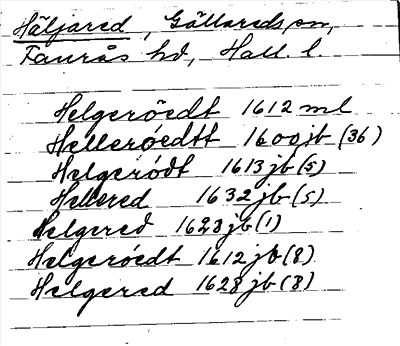 Häljared, Gällareds sn,
Faurås hd, Hall. l.
Helgeröedt 1612 ml
Helleröedtt 1600 jb (36)
Helgerödt 1613 jb (5)
Hellered 1632 jb (5)
Helgered 1628 jb (1)
Helgeröedt 1612 jb (8)
Helgered 1628 jb (8)